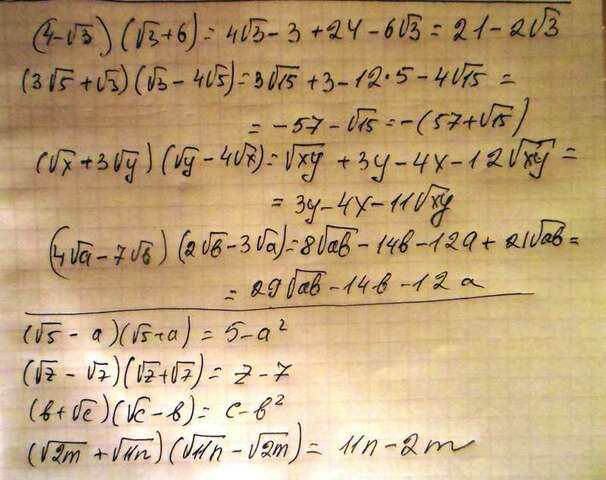 (4-√3)(√3+6)=4√3-3+24-6√3=21-2√3
(3√5+√3)(√3-4√5)=3√15+3-12·5-4√15=
=-57-√15=-(57+√15)
(√x+3√y)(√y-4√x)=√xy+3y-4x-12√xy=
=3y-4x-11√xy
(4√a-7√b)(2√b-3√a)=8√ab-14b-12a+21√ab=
=29√ab-14b-12a
(√5-a)(√5+a)=5-a²
(√z-√7)(√z+√7)=z-7
(b+√c)(√c-b)=c-b²
(√2m+√11n)(√11n-√2m)=11n-2m